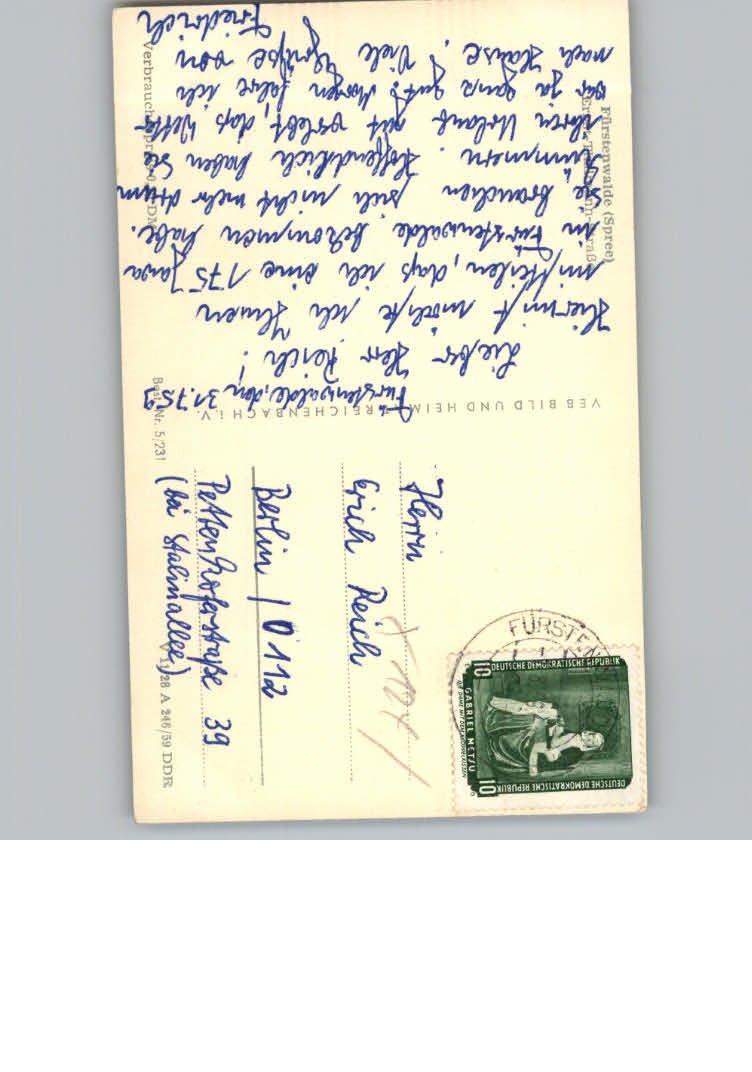 Fürstenwalde (Spree)
Ernst-Thälmann-Straße
Fürstenwalde, den 31.7.59
Lieber Herr Reich!
Hiermit möchte ich Ihnen
mitteilen, daß ich eine 175 Jawa
in Fürstenwalde bekommen habe.
Sie brauchen sich nicht mehr drum
kümmern. Hoffendlich haben Sie
Ihren Urlaub gut verlebt, das Wetter
war ja ganz gut. Morgen fahre ich
nach Hause. Viele Grüße von
Friedrich
Verbraucherpreis DM
VEB BILD UND HEIM REICHENBACH i. V.
Best.-Nr. 5/231
Herrn
Erich Reich
Berlin / O 112
Pettenkoferstraße 39
(bei Stalinallee)
V 11/28 A 246/59 DDR
FÜRSTEN
DEUTSCHE DEMOKRATISCHE REPUBLIK
10
GABRIEL METSU
DEUTSCHE DEMOKRATISCHE REPUBLIK
10